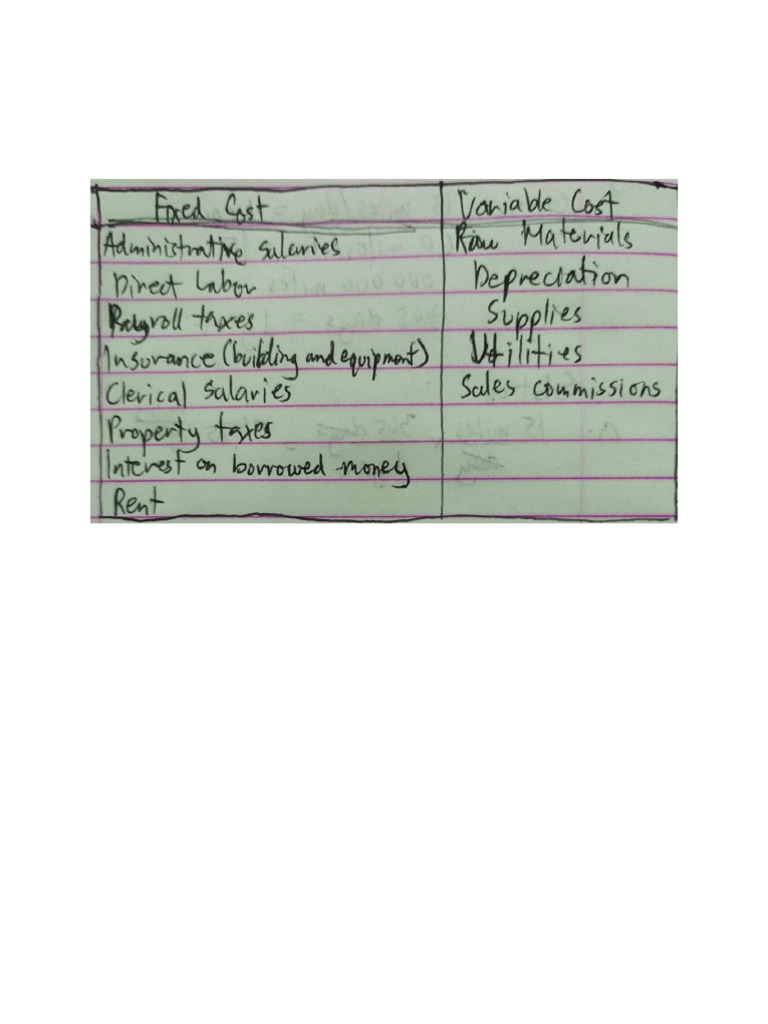 Fixed Cost Variable Cost
Administrative salaries Raw Materials
Direct Labor Depreciation
Payroll taxes Supplies
Insurance (building and equipment) Utilities
Clerical salaries Sales commissions
Property taxes
Interest on borrowed money
Rent